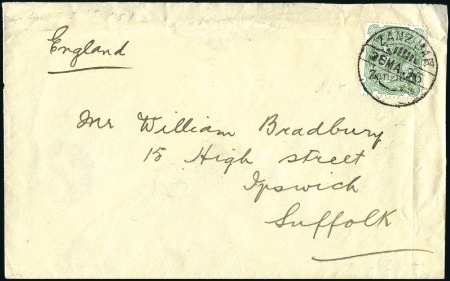 England
ZANZIBAR
Zanzibar
Mr William Bradbury
15 High street
Ipswich
Suffolk